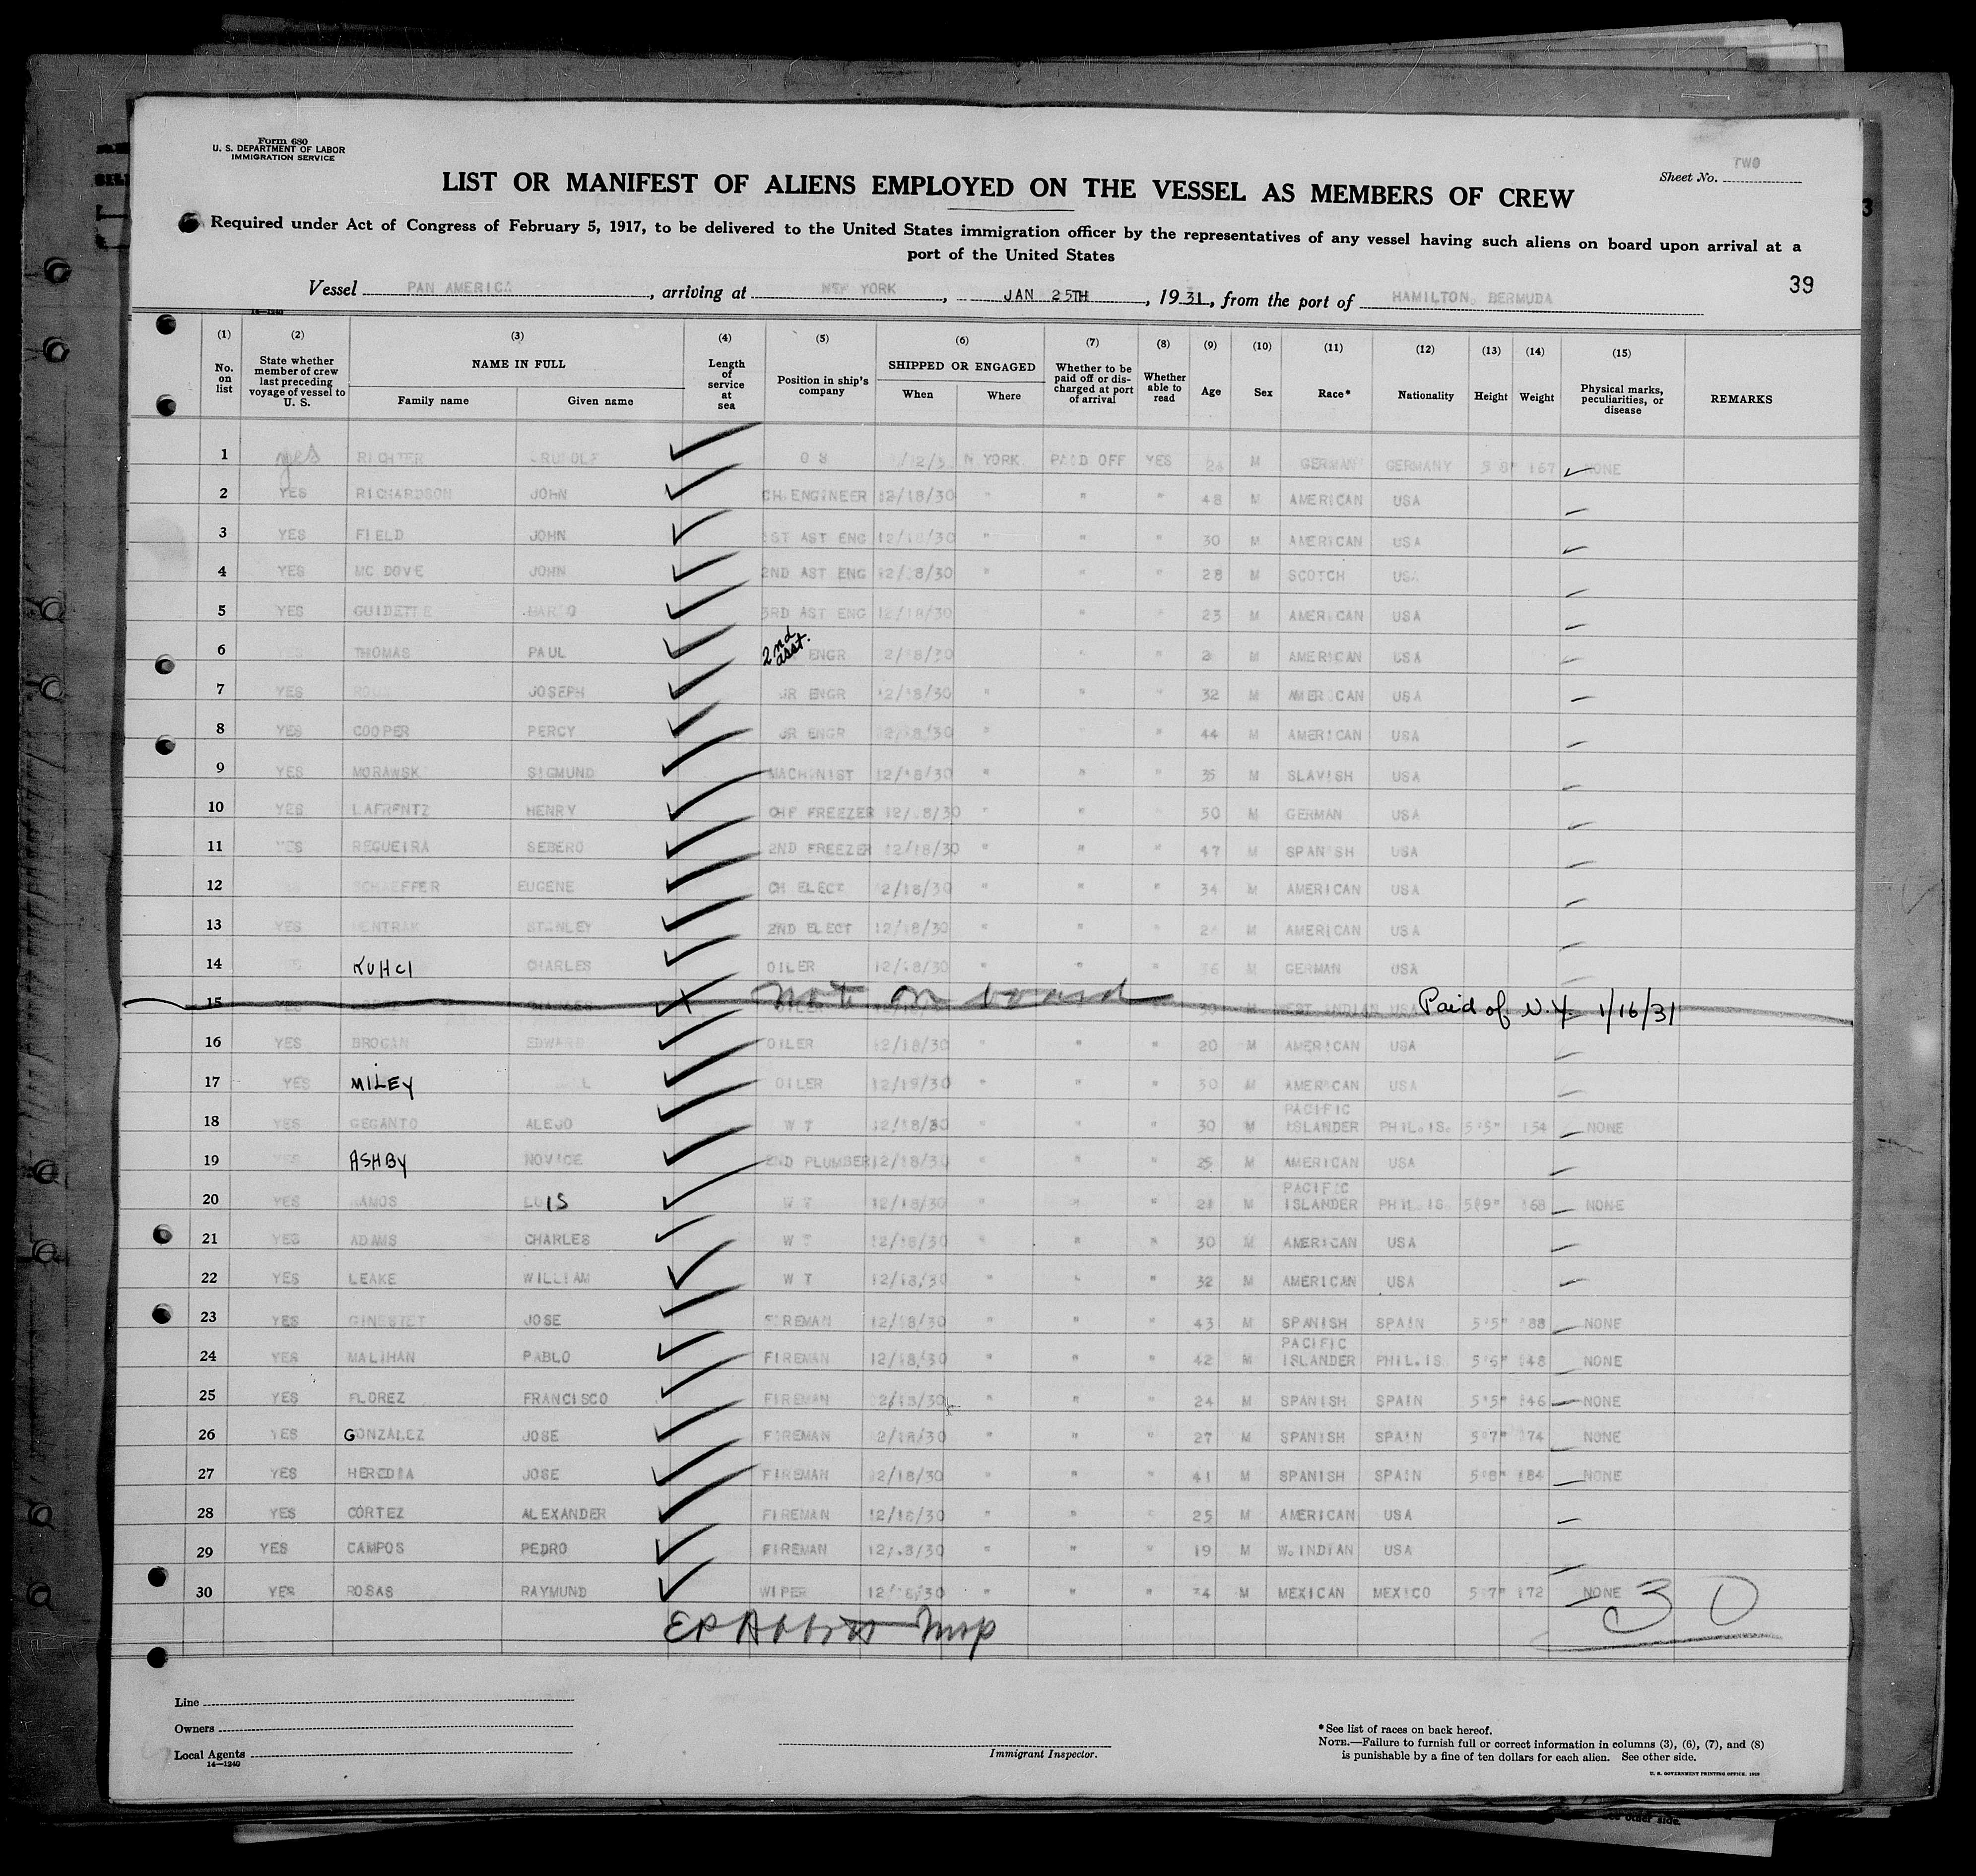 Form 680
U. S. DEPARTMENT OF LABOR
IMMIGRATION SERVICE
Sheet No. TWO
LIST OR MANIFEST OF ALIENS EMPLOYED ON THE VESSEL AS MEMBERS OF CREW
Required under Act of Congress of February 5, 1917, to be delivered to the United States immigration officer by the representatives of any vessel having such aliens on board upon arrival at a
port of the United States
39
Vessel PAN AMERICA, arriving at NEW YORK, JAN 25TH, 1931, from the port of HAMILTON, BERMUDA
(1) No. on list (2) State whether member of crew last preceding voyage of vessel to U. S. (3) NAME IN FULL Family name Given name (4) Length of service at sea (5) Position in ship's company (6) SHIPPED OR ENGAGED When Where (7) Whether to be paid off or discharged at port of arrival (8) Whether able to read (9) Age (10) Sex (11) Race* (12) Nationality (13) Height (14) Weight (15) Physical marks, peculiarities, or disease REMARKS
1 yes RICHTER O S N YORK PAID OFF YES 24 M GERMAN GERMANY 5 8" 167 NONE
2 YES RICHARDSON JOHN CH ENGINEER 12/18/30 " " " 48 M AMERICAN USA
3 YES FIELD JOHN 1ST AST ENG 12/18/30 " " " 30 M AMERICAN USA
4 YES MC DOVE JOHN 2ND AST ENG 12/18/30 " " " 28 M SCOTCH USA
5 YES GUIDETTE MARIO 3RD AST ENG 12/18/30 " " 23 M AMERICAN USA
6 YES THOMAS PAUL 2nd asst. ENGR 12/18/30 " " M AMERICAN USA
7 YES JOSEPH JR ENGR 12/18/30 " " " 32 M AMERICAN USA
8 YES COOPER PERCY JR ENGR 12/18/30 " " " 44 M AMERICAN USA
9 YES MORAWSK SIGMUND MACHINIST 12/18/30 " " " 35 M SLAVISH USA
10 YES LAFRENTZ HENRY CHF FREEZER 12/18/30 " " " 50 M GERMAN USA
11 YES REGUEIRA SEBERO 2ND FREEZER 12/18/30 " " " 47 M SPANISH USA
12 YES SCHAEFFER EUGENE CH ELECT 12/18/30 " " " 34 M AMERICAN USA
13 YES STANLEY 2ND ELECT 12/18/30 " " " M AMERICAN USA
14 KUHCI CHARLES OILER 12/18/30 " " " 36 M GERMAN USA
15 YES CHARLES OILER not on board M WEST INDIAN USA Paid of N.Y. 1/16/31
16 YES BROGAN EDWARD OILER 12/18/30 " " " 20 M AMERICAN USA
17 YES MILEY OILER 12/19/30 " " " 30 M AMERICAN USA
18 YES GEGANTO ALEJO W T 12/18/30 " " " 30 M PACIFIC ISLANDER PHIL. IS. 5'5" 154 NONE
19 YES ASHBY NOVICE 2ND PLUMBER 12/18/30 " " " 25 M AMERICAN USA
20 YES RAMOS LUIS W T 12/18/30 " " " 21 M PACIFIC ISLANDER PHIL IS 5'9" 168 NONE
21 YES ADAMS CHARLES W T 12/18/30 " " " 30 M AMERICAN USA
22 YES LEAKE WILLIAM W T 12/18/30 " " " 32 M AMERICAN USA
23 YES GINESTET JOSE FIREMAN 12/18/30 " " " 43 M SPANISH SPAIN 5'5" 188 NONE
24 YES MALIHAN PABLO FIREMAN 12/18/30 " " " 42 M PACIFIC ISLANDER PHIL. IS 5'6" 148 NONE
25 YES FLOREZ FRANCISCO FIREMAN 12/18/30 " " " 24 M SPANISH SPAIN 5'5" 146 NONE
26 YES GONZALEZ JOSE FIREMAN 12/18/30 " " " 27 M SPANISH SPAIN 5'7" 174 NONE
27 YES HEREDIA JOSE FIREMAN 12/18/30 " " " 41 M SPANISH SPAIN 5'8" 184 NONE
28 YES CORTEZ ALEXANDER FIREMAN 12/18/30 " " " 25 M AMERICAN USA
29 YES CAMPOS PEDRO FIREMAN 12/18/30 " " " 19 M W. INDIAN USA
30 YES ROSAS RAYMUND WIPER 12/18/30 " " " 34 M MEXICAN MEXICO 5'7" 172 NONE
30
Line
Owners
Local Agents
14—1240
Immigrant Inspector.
*See list of races on back hereof.
NOTE.—Failure to furnish full or correct information in columns (3), (6), (7), and (8)
is punishable by a fine of ten dollars for each alien. See other side.
U. S. GOVERNMENT PRINTING OFFICE